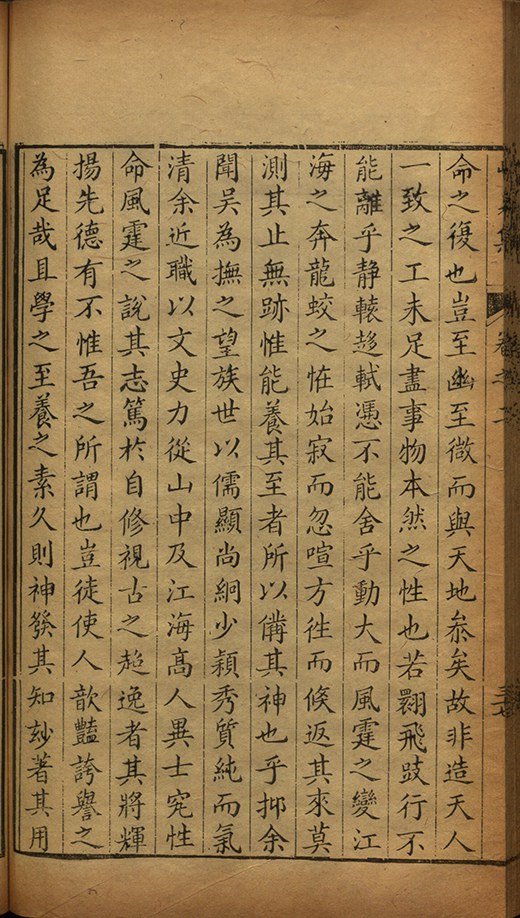 命之復也豈至幽至微而與天地叅矣故非造天人
一致之工未足盡事物本然之性也若翾飛跂行不
能離乎静轅趍軾憑不能舍乎動大而風霆之變江
海之奔龍蛟之恠始寂而忽喧方徃而倐返其來莫
測其止無跡惟能養其至者所以備其神也乎抑余
聞吴為撫之望族世以儒顯尚絅少穎秀質純而氣
清余近職以文史力從山中及江海高人異士究性
命風霆之說其志篤於自修視古之超逸者其將輝
揚先德有不惟吾之所謂也豈徒使人歆豔誇譽之
為足哉且學之至養之素久則神發其知玅著其用